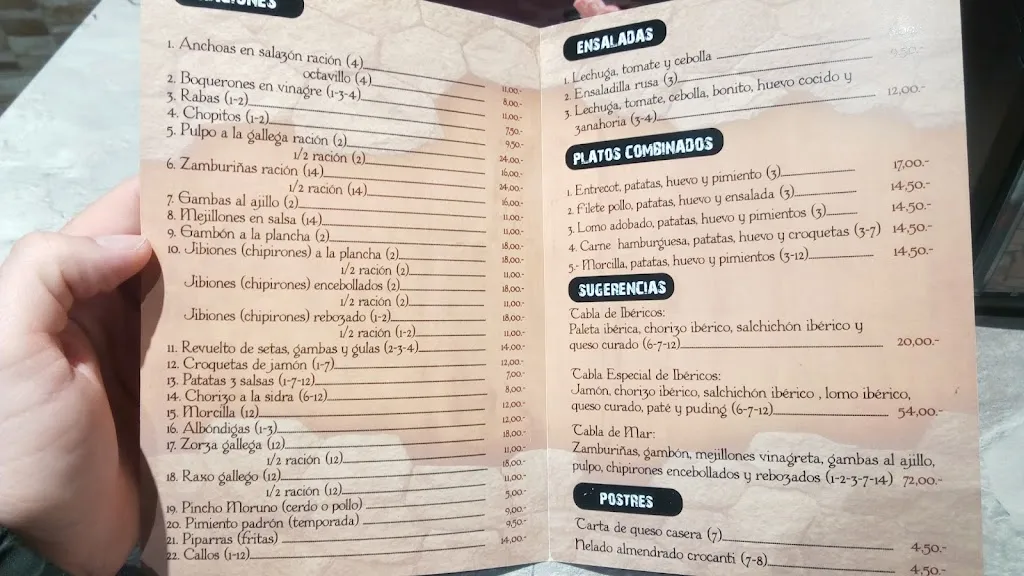 RACIONES
1. Anchoas en salazón ración (4) 11,00.-
octavillo (4) 8,00.-
2. Boquerones en vinagre (1-3-4) 11,00.-
3. Rabas (1-2) 7,50.-
4. Chopitos (1-2) 9,50.-
5. Pulpo a la gallega ración (2) 24,00.-
1/2 ración (2) 16,00.-
6. Zamburiñas ración (14) 24,00.-
1/2 ración (14) 16,00.-
7. Gambas al ajillo (2) 11,00.-
8. Mejillones en salsa (14) 11,00.-
9. Gambón a la plancha (2) 18,00.-
10. Jibiones (chipirones) a la plancha (2) 18,00.-
1/2 ración (2) 11,00.-
Jibiones (chipirones) encebollados (2) 18,00.-
1/2 ración (2) 11,00.-
Jibiones (chipirones) rebozado (1-2) 18,00.-
1/2 ración (1-2) 11,00.-
11. Revuelto de setas, gambas y gulas (2-3-4) 14,00.-
12. Croquetas de jamón (1-7) 12,00.-
13. Patatas 3 salsas (1-7-12) 7,00.-
14. Chorizo a la sidra (6-12) 8,00.-
15. Morcilla (12) 12,00.-
16. Albóndigas (1-3) 12,00.-
17. Zorza gallega (12) 18,00.-
1/2 ración (12) 11,00.-
18. Raxo gallego (12) 18,00.-
1/2 ración (12) 11,00.-
19. Pincho Moruno (cerdo o pollo) 3,00.-
20. Pimiento padrón (temporada) 9,00.-
21. Piparras (fritas) 9,50.-
22. Callos (1-12) 14,00.-
ENSALADAS
1. Lechuga, tomate y cebolla
2. Ensaladilla rusa (3) 9,50.-
3. Lechuga, tomate, cebolla, bonito, huevo cocido y
zanahoria (3-4) 12,00.-
PLATOS COMBINADOS
1. Entrecot, patatas, huevo y pimiento (3) 17,00.-
2. Filete pollo, patatas, huevo y ensalada (3) 14,50.-
3. Lomo adobado, patatas, huevo y pimientos (3) 14,50.-
4. Carne hamburguesa, patatas, huevo y croquetas (3-7) 14,50.-
5.- Morcilla, patatas, huevo y pimientos (3-12) 14,50.-
SUGERENCIAS
Tabla de Ibéricos:
Paleta ibérica, chorizo ibérico, salchichón ibérico y
queso curado (6-7-12) 20,00.-
Tabla Especial de Ibéricos:
Jamón, chorizo ibérico, salchichón ibérico , lomo ibérico,
queso curado, paté y puding (6-7-12) 54,00.-
Tabla de Mar:
Zamburiñas, gambón, mejillones vinagreta, gambas al ajillo,
pulpo, chipirones encebollados y rebozados (1-2-3-7-14) 72,00.-
POSTRES
Tarta de queso casera (7) 4,50.-
Helado almendrado crocanti (7-8) 4,50.-